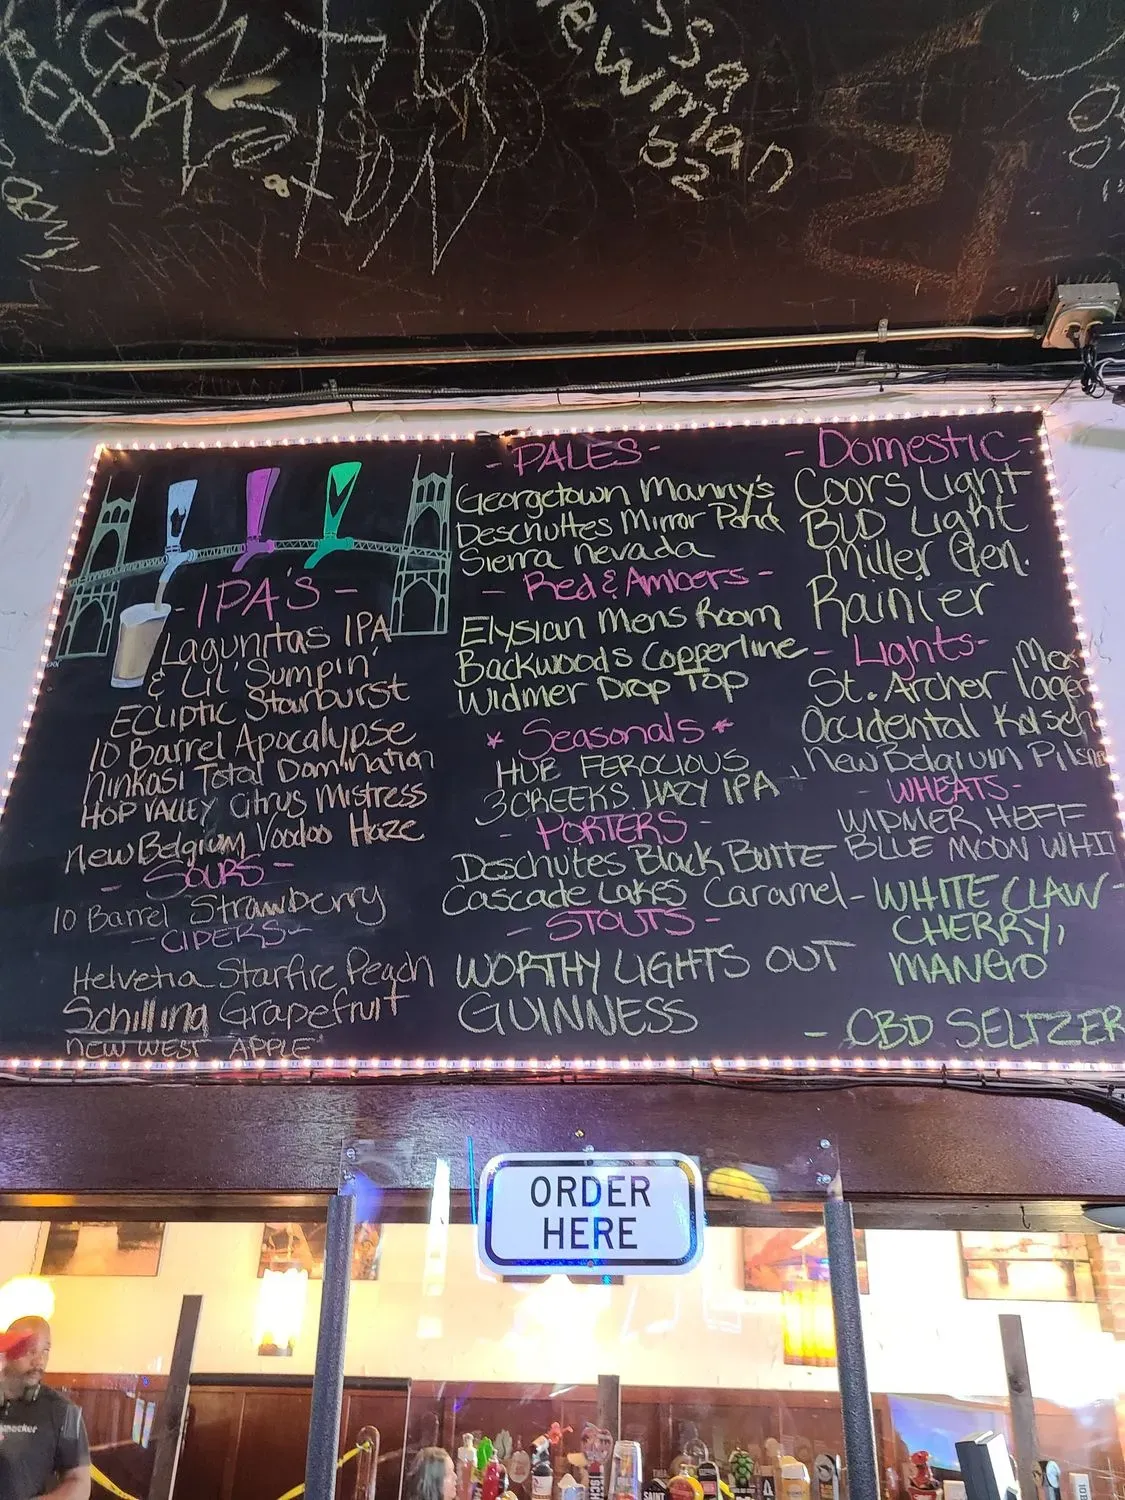 Newman
02
- IPA'S -
Lagunitas IPA
& Lil' Sumpin'
Ecliptic Starburst
10 Barrel Apocalypse
Ninkasi Total Domination
HOP VALLEY Citrus Mistress
New Belgium Voodoo Haze
- SOURS -
10 Barrel Strawberry
- CIDERS -
Helvetia Starfire Peach
Schilling Grapefruit
NEW WEST APPLE
- PALES -
Georgetown Manny's
Deschuttes Mirror Pond
Sierra Nevada
- Red & Ambers -
Elysian Mens Room
Backwoods Copperline
Widmer Drop Top
* Seasonals *
HUB FEROCIOUS
3 CREEKS HAZY IPA
- PORTERS -
Deschutes Black Butte
Cascade Lakes Caramel
- STOUTS -
WORTHY LIGHTS OUT
GUINNESS
- Domestic -
Coors Light
BUD Light
Miller Gen.
Rainier
- Lights -
St. Archer Mex Lager
Occidental Kolsch
New Belgium Pilsner
- WHEATS -
WIDMER HEFF
BLUE MOON WHIT
- WHITE CLAW -
CHERRY,
MANGO
- CBD SELTZER
ORDER
HERE